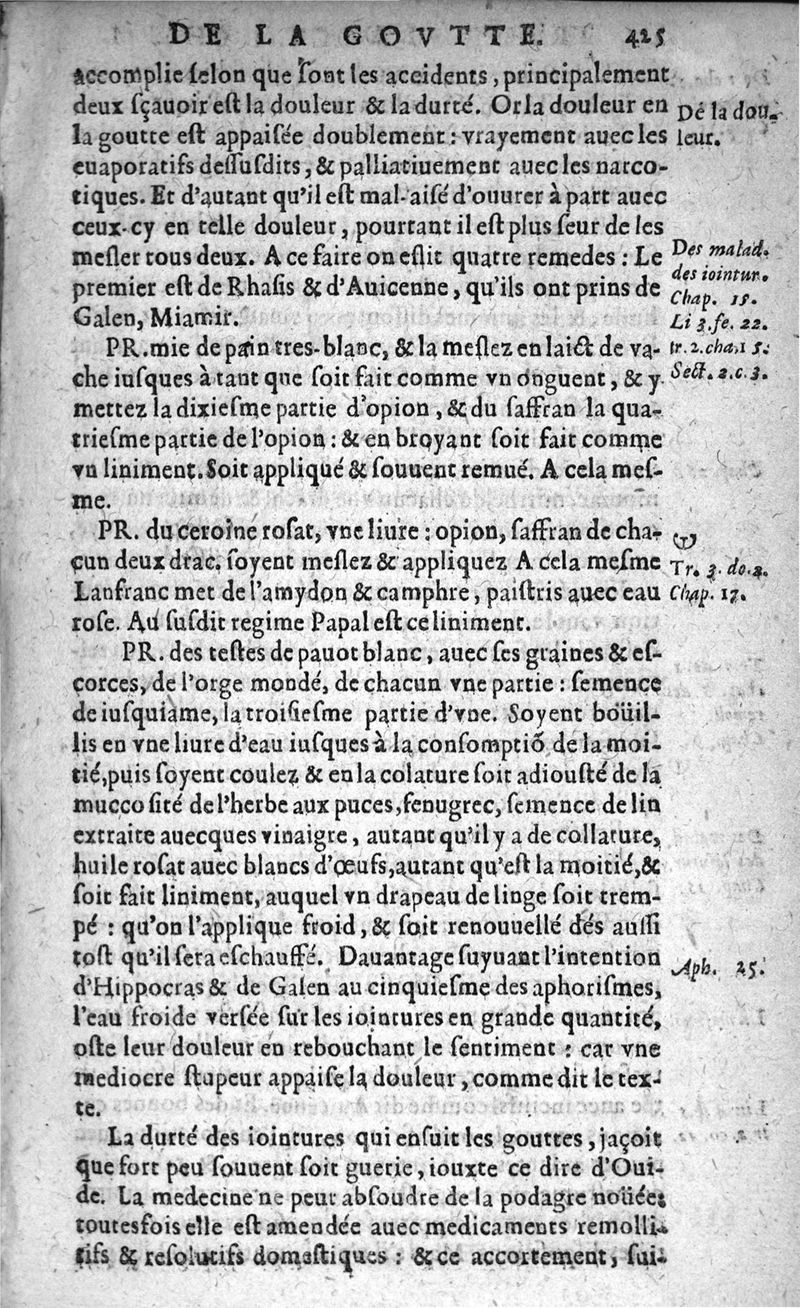 DE LA GOVTTE. 425
accomplie ſelon que ſont les accidents, principalement
deux ſçauoir eſt la douleur & la durté. Or la douleur en
la goutte eſt appaiſée doublement : vrayement auec les
euaporatifs deſſuſdits, & palliatiuement auec les narco-
tiques. Et d'autant qu'il eſt mal-aiſé d'ouurer à part auec
ceux-cy en telle douleur, pourtant il eſt plus ſeur de les
meſler tous deux. A ce faire on eſlit quatre remedes : Le
premier eſt de Rhaſis & d'Auicenne, qu'ils ont prins de
Galen, Miamir.
PR. mie de pain tres-blanc, & la meſlez en laict de va-
che iuſques à tant que ſoit fait comme vn onguent, & y
mettez la dixieſme partie d'opion, & du ſaffran la qua-
trieſme partie de l'opion : & en broyant ſoit fait comme
vn liniment. Soit appliqué & ſouuent remué. A cela meſ-
me.
PR. du ceroine roſat, vne liure : opion, ſaffran de cha-
cun deux drac. ſoyent meſlez & appliquez A cela meſme
Lanfranc met de l'amydon & camphre, paiſtris auec eau
roſe. Au ſuſdit regime Papal eſt ce liniment.
PR. des teſtes de pauot blanc, auec ſes graines & eſ-
corces, de l'orge mondé, de chacun vne partie : ſemence
de iuſquiame, la troiſieſme partie d'vne. Soyent boüil-
lis en vne liure d'eau iuſques à la conſomptiõ de la moi-
tié, puis ſoyent coulez & en la colature ſoit adiouſté de la
mucco ſité de l'herbe aux puces, fenugrec, ſemence de lin
extraite auecques vinaigre, autant qu'il y a de collature,
huile roſat auec blancs d'œufs, autant qu'eſt la moitié, &
ſoit fait liniment, auquel vn drapeau de linge ſoit trem-
pé : qu'on l'applique froid, & ſoit renouuellé dés auſſi
toſt qu'il ſera eſchauffé. Dauantage ſuyuant l'intention
d'Hippocras & de Galen au cinquieſme des aphoriſmes,
l'eau froide verſée ſur les iointures en grande quantité,
oſte leur douleur en rebouchant le ſentiment : car vne
mediocre ſtupeur appaiſe la douleur, comme dit le tex-
te.
La durté des iointures qui enſuit les gouttes, jaçoit
que fort peu ſouuent ſoit guerie, iouxte ce dire d'Oui-
de. La medecine ne peut abſoudre de la podagre noüée:
toutesfois elle eſt amendée auec medicaments remolli-
tifs & reſolutifs domaſtiques : & ce accortement, ſui-
Dé la dou-
leur.
Des malad.
des iointur.
Chap. 15.
Li 3. fe. 22.
tr. 2. cha. 1 5.
Sect. 2. c. 3.
Tr. 3. do. 2.
Chap. 17.
Aph. 25.